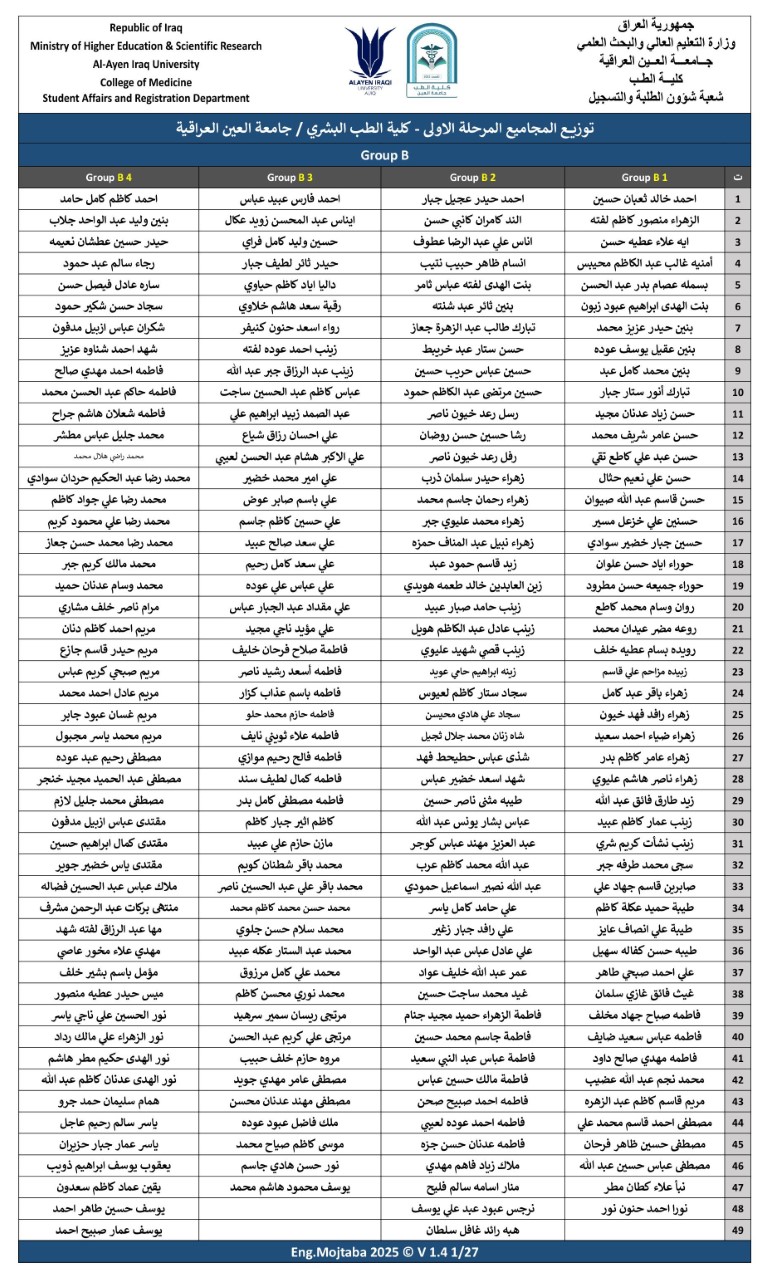 Republic of Iraq
Ministry of Higher Education & Scientific Research
Al-Ayen Iraq University
College of Medicine
Student Affairs and Registration Department
ALAYEN IRAQI
UNIVERSITY
AUIQ
كلية الطب
جامعة العين
جمهورية العراق
وزارة التعليم العالي والبحث العلمي
جـامـعـة العـين العراقية
كليـة الطب
شعبة شؤون الطلبة والتسجيل
توزيع المجاميع المرحلة الاولى - كلية الطب البشري / جامعة العين العراقية
Group B
ت Group B 1 Group B 2 Group B 3 Group B 4
1 احمد خالد ثعبان حسين احمد حيدر عجيل جبار احمد فارس عبيد عباس احمد كاظم كامل حامد
2 الزهراء منصور كاظم لفته الند كامران كاني حسن ايناس عبد المحسن زويد عكال بنين وليد عبد الواحد جلاب
3 ايه علاء عطيه حسن اناس علي عبد الرضا عطوف حسين وليد كامل فراي حيدر حسين عطشان نعيمه
4 أمنيه غالب عبد الكاظم محيبس انسام ظاهر حبيب نتيب حيدر ثائر لطيف جبار رجاء سالم عبد حمود
5 بسمله عصام بدر عبد الحسن بنت الهدى لفته عباس ثامر داليا اياد كاظم حياوي ساره عادل فيصل حسن
6 بنت الهدى ابراهيم عبود زبون بنين ثائر عبد شنته رقية سعد هاشم خلاوي سجاد حسن شكير حمود
7 بنين حيدر عزيز محمد تبارك طالب عبد الزهرة جعاز رواء اسعد حنون كنيفر شكران عباس ازبيل مدفون
8 بنين عقيل يوسف عوده حسن ستار عبد خريبط زينب احمد عوده لفته شهد احمد شناوه عزيز
9 بنين محمد كامل عبد حسين عباس حريب حسين زينب عبد الرزاق جبر عبد الله فاطمه احمد مهدي صالح
10 تبارك أنور ستار جبار حسين مرتضى عبد الكاظم حمود عباس كاظم عبد الحسين ساجت فاطمه حاكم عبد الحسن محمد
11 حسن زياد عدنان مجيد رسل رعد خيون ناصر عبد الصمد زبيد ابراهيم علي فاطمه شعلان هاشم جراح
12 حسن عامر شريف محمد رشا حسين حسن روضان علي احسان رزاق شياع محمد جليل عباس مطشر
13 حسن عبد علي كاطع نقي رفل رعد خيون ناصر علي الاكبر هشام عبد الحسن لعيبي محمد راضي هلال محمد
14 حسن علي نعيم حثال زهراء حيدر سلمان ذرب علي امير محمد خضير محمد رضا عبد الحكيم حردان سوادي
15 حسن قاسم عبد الله صيوان زهراء رحمان جاسم محمد علي باسم صابر عوض محمد رضا علي جواد كاظم
16 حسنين علي خزعل مسير زهراء محمد عليوي جبر علي حسين كاظم جاسم محمد رضا علي محمود كريم
17 حسين جبار خضير سوادي زهراء نبيل عبد المناف حمزه علي سعد صالح عبيد محمد رضا محمد حسن جعاز
18 حوراء اياد حسن علوان زيد قاسم حمود عبد علي سعد كامل رحيم محمد مالك كريم جبر
19 حوراء جميعه حسن مطرود زين العابدين خالد طعمه هويدي علي عباس علي عوده محمد وسام عدنان حميد
20 روان وسام محمد كاطع زينب حامد صبار عبيد علي مقداد عبد الجبار عباس مرام ناصر خلف مشاري
21 روعه مضر عيدان محمد زينب عادل عبد الكاظم هويل علي مؤيد ناجي مجيد مريم احمد كاظم دنان
22 رويده بسام عطيه خلف زينب قصي شهيد عليوي فاطمة صلاح فرحان خليف مريم حيدر قاسم جازع
23 زبيده مزاحم علي قاسم زينه ابراهيم حامي عويد فاطمه أسعد رشيد ناصر مريم صبحي كريم عباس
24 زهراء باقر عبد كامل سجاد ستار كاظم لعيوس فاطمه باسم عذاب كزار مريم عادل احمد محمد
25 زهراء رافد فهد خيون سجاد علي هادي محيسن فاطمه حازم محمد حلو مريم غسان عبود جابر
26 زهراء ضياء احمد سعيد شاه زنان محمد جلال ثجيل فاطمه علاء ثويني نايف مريم محمد ياسر مجبول
27 زهراء عامر كاظم بدر شذى عباس حطيحط فهد فاطمه فالح رحيم موازي مصطفى رحيم عبد عوده
28 زهراء ناصر هاشم عليوي شهد اسعد خضير عباس فاطمه كمال لطيف سند مصطفى عبد الحميد مجيد خنجر
29 زيد طارق فائق عبد الله طيبه مثنى ناصر حسين فاطمه مصطفى كامل بدر مصطفى محمد جليل لازم
30 زينب عمار كاظم عبيد عباس بشار يونس عبد الله كاظم اثير جبار كاظم مقتدى عباس ازبيل مدفون
31 زينب نشأت كريم شري عبد العزيز مهند عباس كوجر مازن حازم علي عبيد مقتدى كمال ابراهيم حسين
32 سجى محمد طرفه جبر عبد الله محمد كاظم عرب محمد باقر شطنان كويم مقتدى ياس خضير جوير
33 صابرين قاسم جهاد علي عبد الله نصير اسماعيل حمودي محمد باقر علي عبد الحسين ناصر ملاك عباس عبد الحسين فضاله
34 طيبة حميد عكلة كاظم علي حامد كامل ياسر محمد حسن محمد كاظم محمد منتهى بركات عبد الرحمن مشرف
35 طيبة علي انصاف عايز علي رافد جبار زغير محمد سلام حسن جلوي مها عبد الرزاق لفته شهد
36 طيبه حسن كفاله سهيل علي عادل عباس عبد الواحد محمد عبد الستار عكله عبيد مهدي علاء مخور عاصي
37 علي احمد صبحي طاهر عمر عبد الله خليف عواد محمد علي كامل مرزوق مؤمل باسم بشير خلف
38 غيث فائق غازي سلمان غيد محمد ساجت حسين محمد نوري محسن كاظم ميس حيدر عطيه منصور
39 فاطمه صباح جهاد مخلف فاطمة الزهراء حميد مجيد جنام مرتجى ريسان سمير سرهيد نور الحسين علي ناجي ياسر
40 فاطمه عباس سعيد ضايف فاطمة جاسم محمد حسين مرتجى علي كريم عبد الحسن نور الزهراء علي مالك رداد
41 فاطمه مهدي صالح داود فاطمة عباس عبد النبي سعيد مروه حازم خلف حبيب نور الهدى حكيم مطر هاشم
42 محمد نجم عبد الله عضيب فاطمة مالك حسين عباس مصطفى عامر مهدي جويد نور الهدى عدنان كاظم عبد الله
43 مريم قاسم كاظم عبد الزهره فاطمه احمد صبيح صحن مصطفى مهند عدنان محسن همام سليمان حمد جرو
44 مصطفى احمد قاسم محمد علي فاطمه احمد عوده لعيبي ملك فاضل عبود عوده ياسر سالم رحيم عاجل
45 مصطفى حسين ظاهر فرحان فاطمه عدنان حسن جزه موسى كاظم صياح محمد ياسر عمار جبار حزيران
46 مصطفى عباس حسين عبد الله ملاك زياد فاهم مهدي نور حسن هادي جاسم يعقوب يوسف ابراهيم ذويب
47 نبأ علاء كطان مطر منار اسامه سالم فليح يوسف محمود هاشم محمد يقين عماد كاظم سعدون
48 نورا احمد حنون نور نرجس عبود عبد علي يوسف يوسف حسين طاهر احمد
49 هبه رائد غافل سلطان يوسف عمار صبيح احمد
Eng.Mojtaba 2025 © V 1.4 1/27